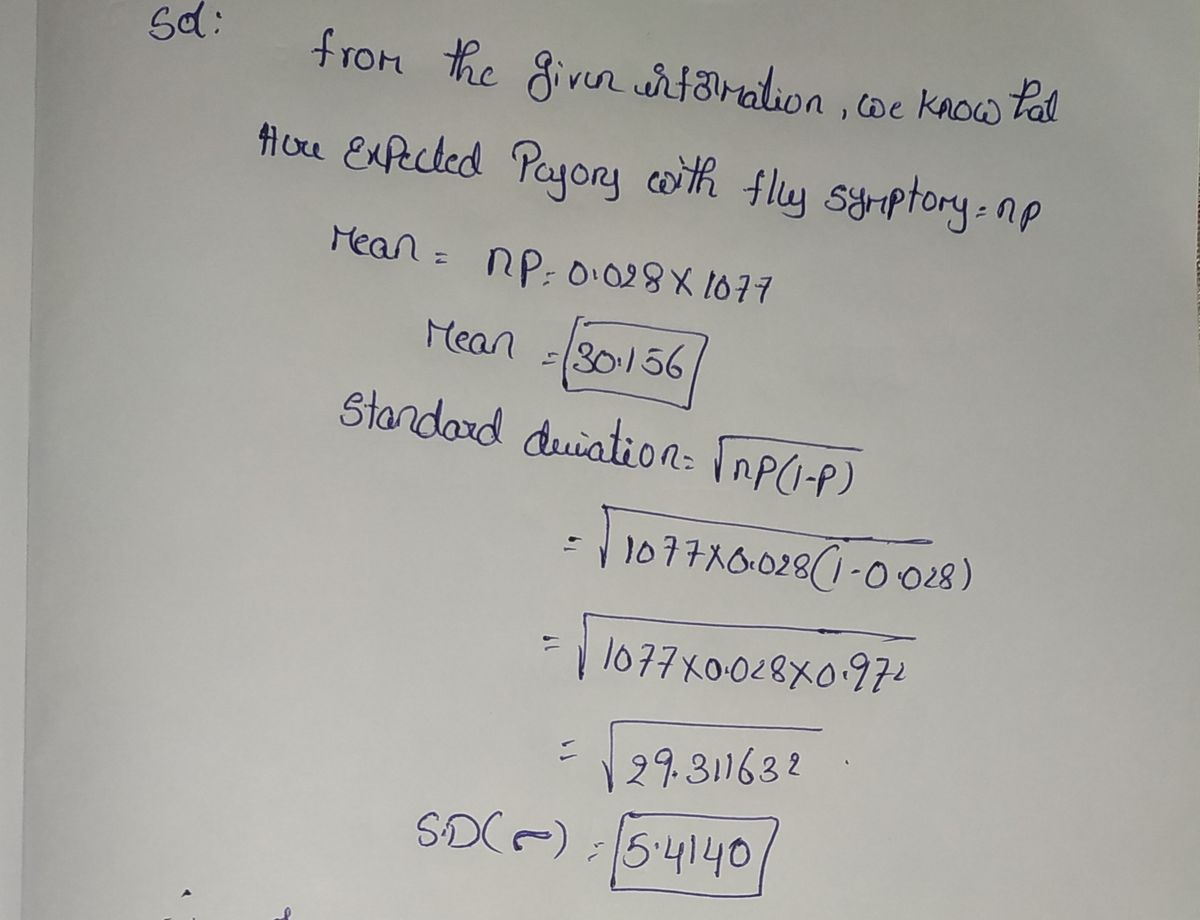 Sol:
from the given information, we know that
Here Expected Persons with flu symptoms = np
Mean = np = 0.028 X 1077
Mean = 30.156
Standard deviation = √np(1-p)
= √1077X0.028(1-0.028)
= √1077X0.028X0.972
= √29.311632
S.D(σ) = 5.4140